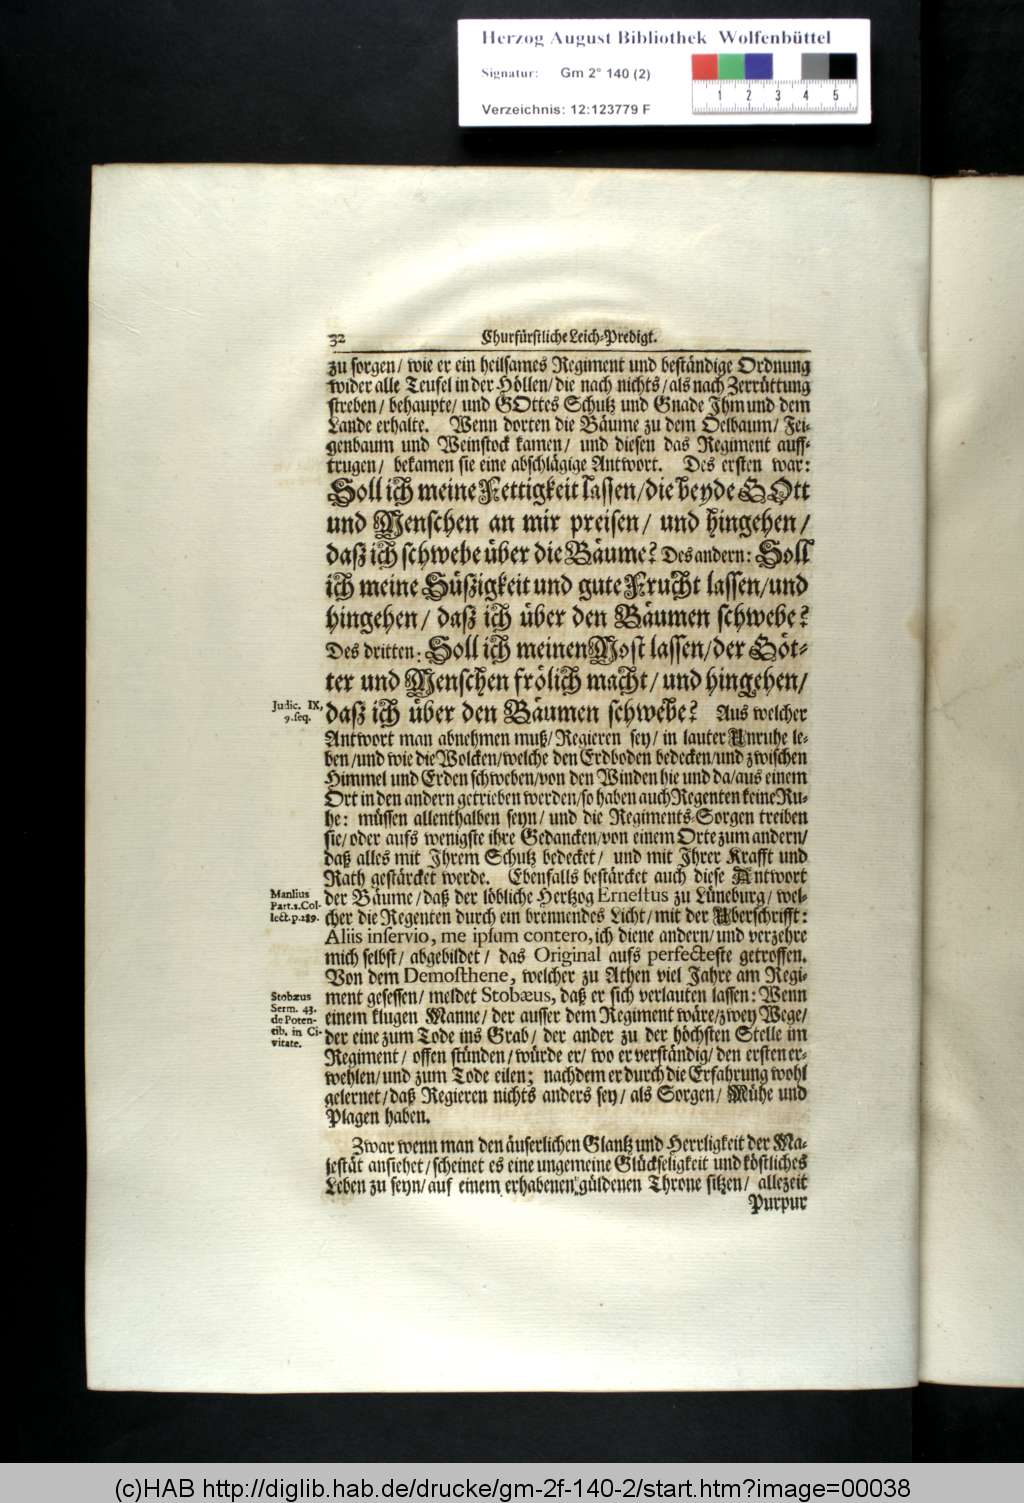 Herzog August Bibliothek Wolfenbüttel
Signatur: Gm 2° 140 (2)
Verzeichnis: 12:123779 F
1 2 3 4 5
32 Churfürstliche Leich-Predigt.
zu sorgen/ wie er ein heilsames Regiment und beständige Ordnung
wider alle Teufel in der Höllen/ die nach nichts/ als nach Zerrüttung
streben/ behaupte/ und GOttes Schutz und Gnade Ihm und dem
Lande erhalte. Wenn dorten die Bäume zu dem Oelbaum/ Fei-
genbaum und Weinstock kamen/ und diesen das Regiment auff-
trugen/ bekamen sie eine abschlägige Antwort. Des ersten war:
Soll ich meine Fettigkeit lassen/ die beyde GOtt
und Menschen an mir preisen/ und hingehen/
daß ich schwebe über die Bäume? Des andern: Soll
ich meine Süßigkeit und gute Frucht lassen/ und
hingehen/ daß ich über den Bäumen schwebe?
Des dritten: Soll ich meinen Most lassen/ der Göt-
ter und Menschen frölich macht/ und hingehen/
Judic. IX,
9. seq.
daß ich über den Bäumen schwebe? Aus welcher
Antwort man abnehmen muß/ Regieren sey/ in lauter Unruhe le-
ben/ und wie die Wolcken/ welche den Erdboden bedecken/ und zwischen
Himmel und Erden schweben/ von den Winden hie und da/ aus einem
Ort in den andern getrieben werden/ so haben auch Regenten keine Ru-
he: müssen allenthalben seyn/ und die Regiments-Sorgen treiben
sie/ oder aufs wenigste ihre Gedancken/ von einem Orte zum andern/
daß alles mit Ihrem Schutz bedecket/ und mit Ihrer Krafft und
Rath gestärcket werde. Ebenfalls bestärcket auch diese Antwort
Manlius
Part. 2. Col-
lect. p. 189.
der Bäume/ daß der löbliche Hertzog Ernestus zu Lüneburg/ wel-
cher die Regenten durch ein brennendes Licht/ mit der Uberschrifft:
Aliis inservio, me ipsum contero, ich diene andern/ und verzehre
mich selbst/ abgebildet/ das Original aufs perfecteste getroffen.
Von dem Demosthene, welcher zu Athen viel Jahre am Regi-
Stobæus
Serm. 43.
de Poten-
tib. in Ci-
vitate.
ment gesessen/ meldet Stobæus, daß er sich verlauten lassen: Wenn
einem klugen Manne/ der ausser dem Regiment wäre/ zwey Wege/
der eine zum Tode ins Grab/ der ander zu der höchsten Stelle im
Regiment/ offen stünden/ würde er/ wo er verständig/ den ersten er-
wehlen/ und zum Tode eilen; nachdem er durch die Erfahrung wohl
gelernet/ daß Regieren nichts anders sey/ als Sorgen/ Mühe und
Plagen haben.
Zwar wenn man den äuserlichen Glantz und Herrligkeit der Ma-
jestät ansiehet/ scheinet es eine ungemeine Glückseligkeit und köstliches
Leben zu seyn/ auf einem erhabenen güldenen Throne sitzen/ allezeit
Purpur
(c)HAB http://diglib.hab.de/drucke/gm-2f-140-2/start.htm?image=00038